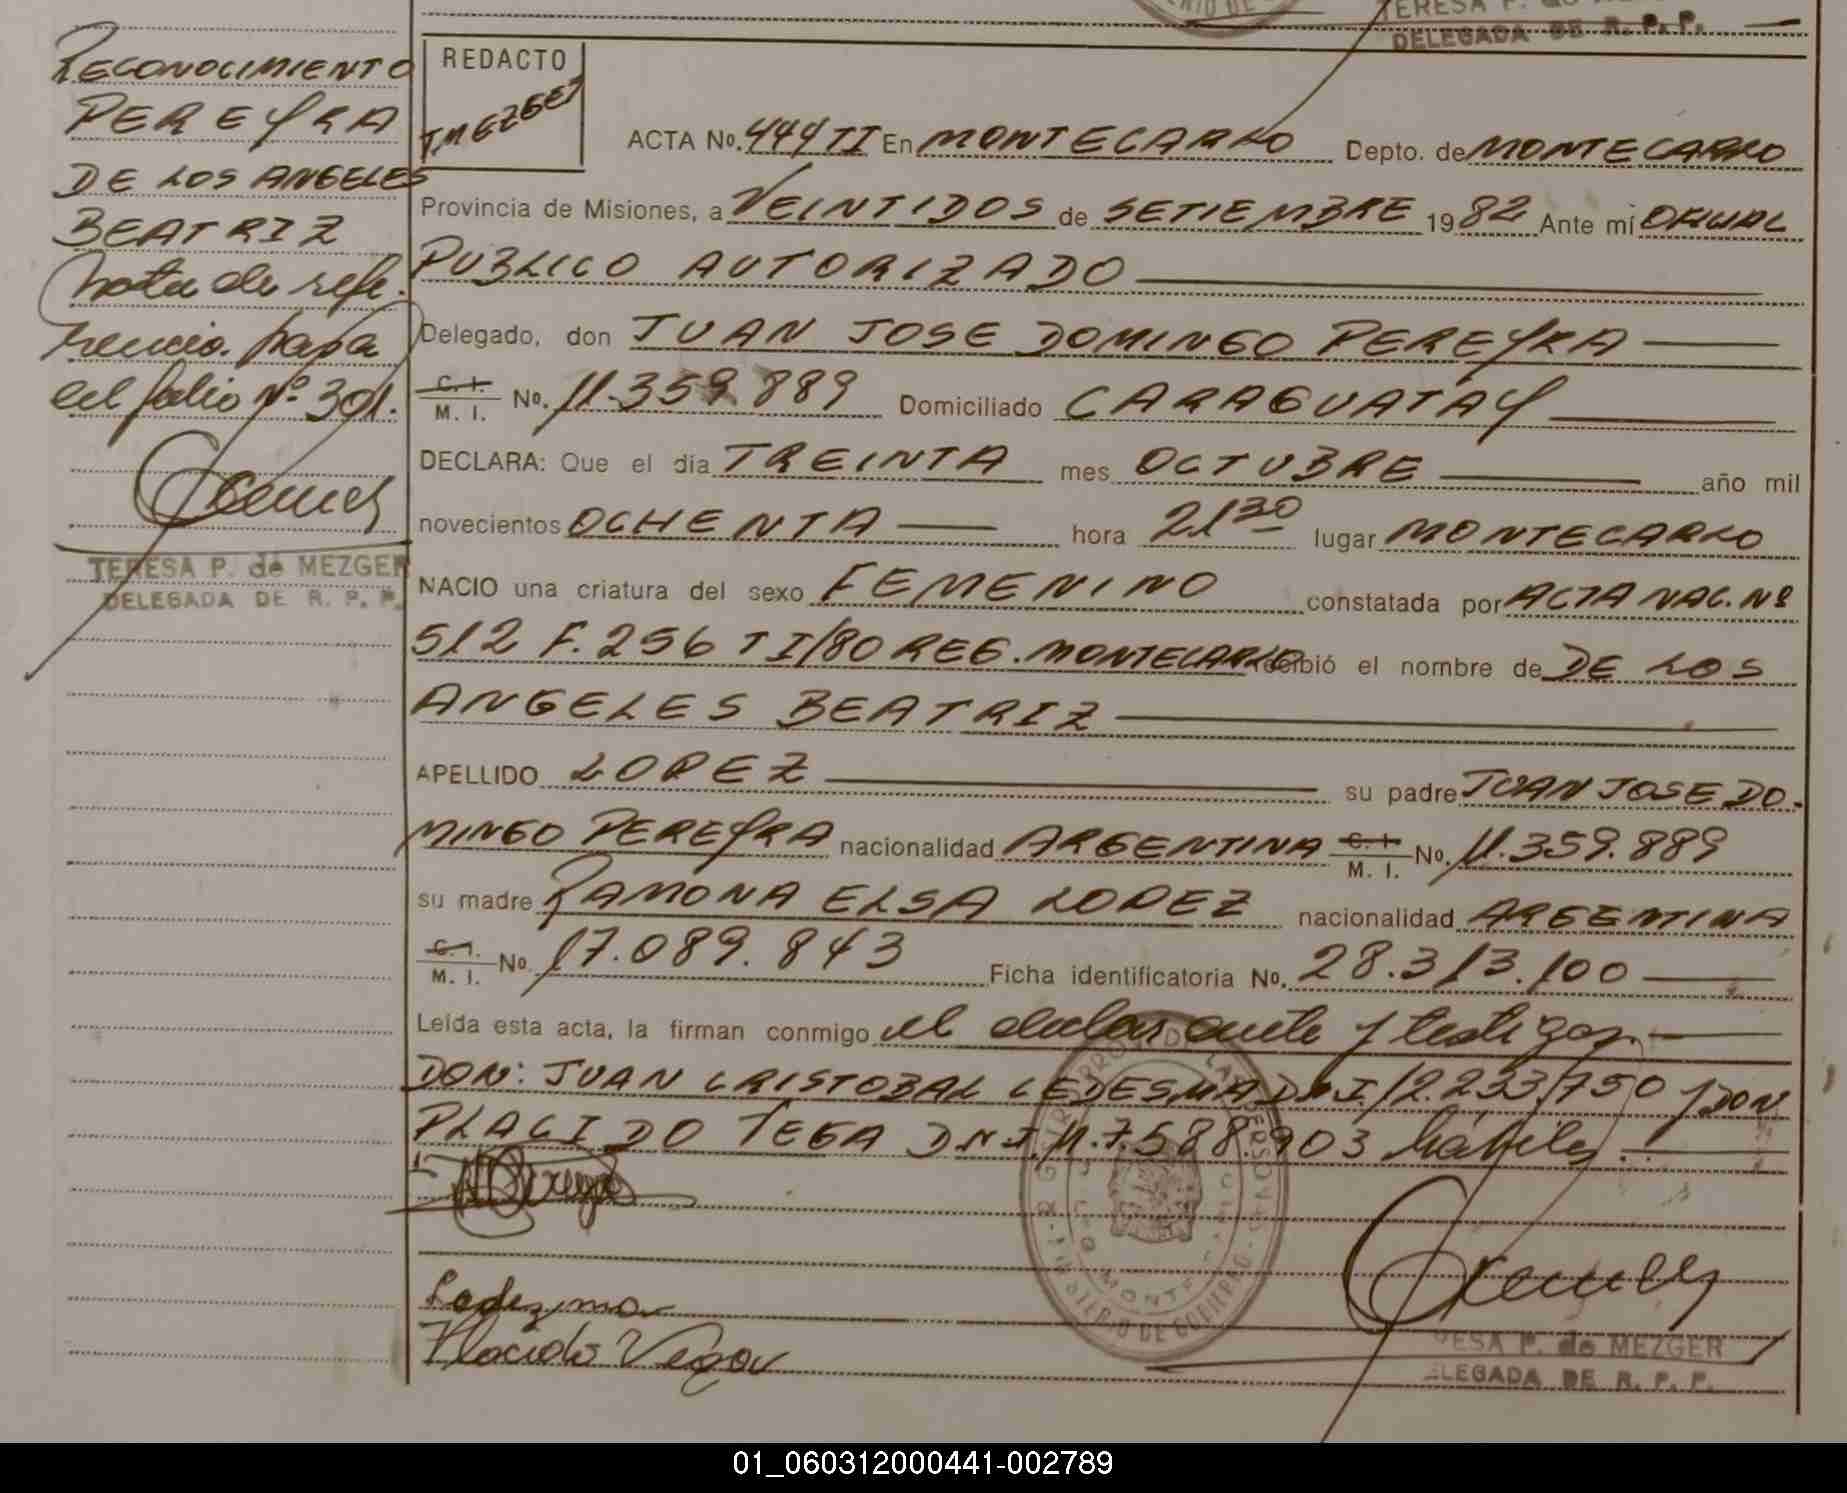 TERESA P. de MEZGER
DELEGADA DE R. P. P.
RECONOCIMIENTO
PEREYRA
DE LOS ANGELES
BEATRIZ
nota de refe-
rencia pasa
al folio Nº 301.
TERESA P. de MEZGER
DELEGADA DE R. P. P.
REDACTO
T.MEZGER
ACTA No. 444 TI En MONTECARLO Depto. de MONTECARLO
Provincia de Misiones, a VEINTIDOS de SETIEMBRE 1982 Ante mí OFICIAL
PUBLICO AUTORIZADO
Delegado, don JUAN JOSE DOMINGO PEREYRA
C. I. M. I. No. 11.359.889 Domiciliado CARAGUATAY
DECLARA: Que el día TREINTA mes OCTUBRE año mil
novecientos OCHENTA hora 21 30 lugar MONTECARLO
NACIO una criatura del sexo FEMENINO constatada por ACTA NAC. Nº
512 F. 256 TI/80 REG. MONTECARLO recibió el nombre de DE LOS
ANGELES BEATRIZ
APELLIDO LOPEZ su padre JUAN JOSE DO-
MINGO PEREYRA nacionalidad ARGENTINA C. I. M. I. No. 11.359.889
su madre RAMONA ELSA LOPEZ nacionalidad ARGENTINA
C. I. M. I. No. 17.089.843 Ficha identificatoria No. 28.313.100
Leída esta acta, la firman conmigo el declarante y testigos
DON: JUAN CRISTOBAL LEDESMA D.N.I. 12.233.750 y DON
PLACIDO VEGA D.N.I. M.7.588.903 hábiles
Ledezma
Placido Vega
MINISTERIO DE GOBIERNO
MONTE
ESA P. de MEZGER
ELEGADA DE R. P. P.
01_060312000441-002789